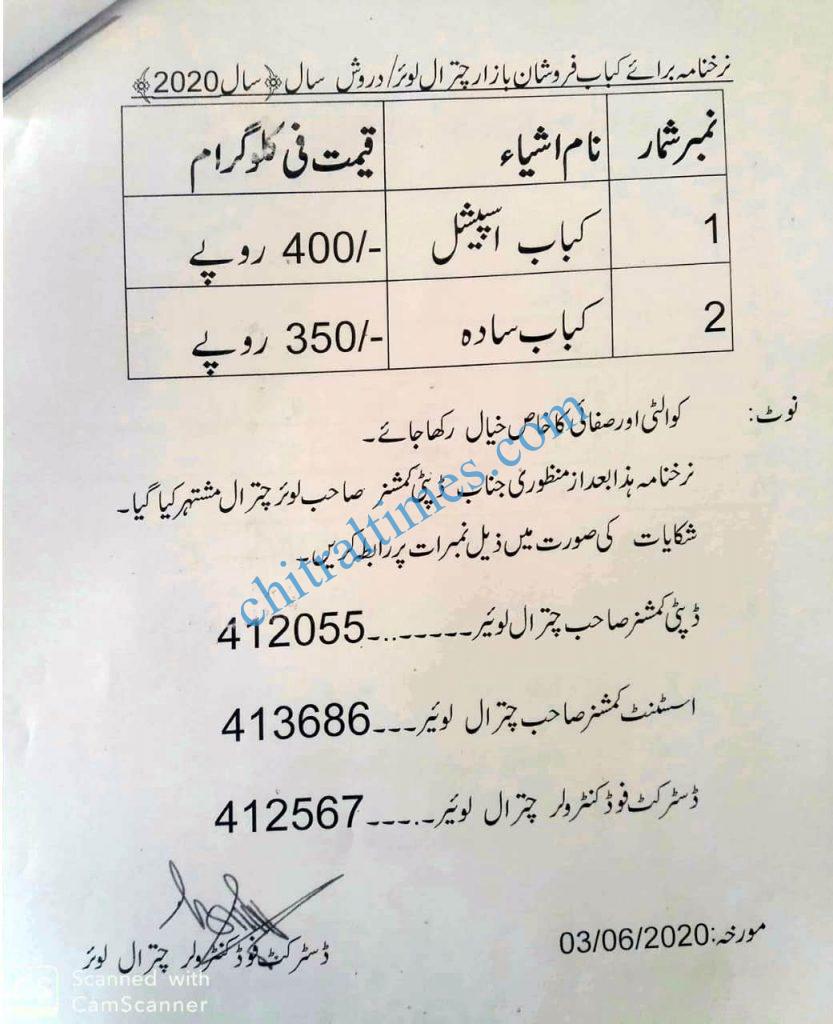 نرخنامہ برائے کباب فروشان بازار چترال لوئر/دروش سال ﴿سال 2020﴾
نمبر شمار نام اشیاء قیمت فی کلوگرام
1 کباب اسپیشل 400/- روپے
2 کباب سادہ 350/- روپے
نوٹ: کوالٹی اور صفائی کا خاص خیال رکھا جائے۔
نرخنامہ ہذا بعد از منظوری جناب ڈپٹی کمشنر صاحب لوئر چترال مشتہر کیا گیا۔
شکایات کی صورت میں ذیل نمبرات پر رابط کریں۔
ڈپٹی کمشنر صاحب چترال لوئیر-----..-412055
اسسٹنٹ کمشنر صاحب چترال لوئیر---413686
ڈسٹرکٹ فوڈ کنٹرولر چترال لوئیر-.---412567
مورخہ:03/06/2020
ڈسٹرکٹ فوڈ کنٹرولر چترال لوئر
chitraltimes.com
CS
Scanned with
CamScanner